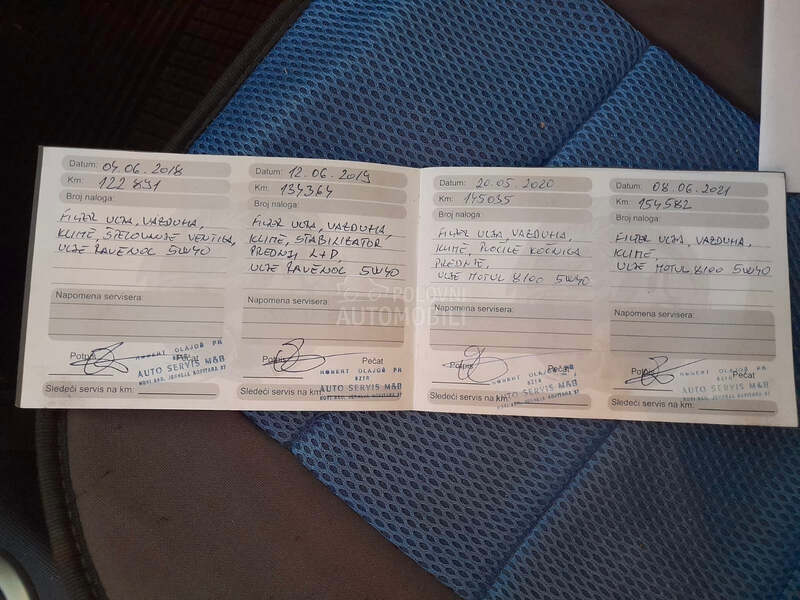 Datum: 04.06.2018
Km: 122 891
Broj naloga:
FILTER ULJA, VAZDUHA,
KLIME, ŠTELOVANJE VENTILA,
ULJE RAVENOL 5W40
Napomena servisera:
Potpis Pečat
NORBERT OLAJOŠ PR
SZTR
AUTO SERVIS M&B
Sledeći servis na km:
Datum: 12.06.2019
Km: 134364
Broj naloga:
FILTER ULJA, VAZDUHA,
KLIME, STABILIZATOR
PREDNJI L+D,
ULJE RAVENOL 5W40
Napomena servisera:
Potpis Pečat
NORBERT OLAJOŠ PR
SZTR
AUTO SERVIS M&B
Sledeći servis na km:
Datum: 20.05.2020
Km: 145035
Broj naloga:
FILTER ULJA, VAZDUHA
KLIME, PLOČICE KOČNICA
PREDNJE,
ULJE MOTUL 8100 5W40
Napomena servisera:
Potpis Pečat
NORBERT OLAJOŠ PR
SZTR
AUTO SERVIS M&B
Sledeći servis na km:
Datum: 08.06.2021
Km: 154582
Broj naloga:
FILTER ULJA, VAZDUHA,
KLIME,
ULJE MOTUL 8100 5W40
Napomena servisera:
Potpis Pečat
NORBERT OLAJOŠ PR
SZTR
AUTO SERVIS M&B
Sledeći servis na km:
POLOVNI
AUTOMOBILI